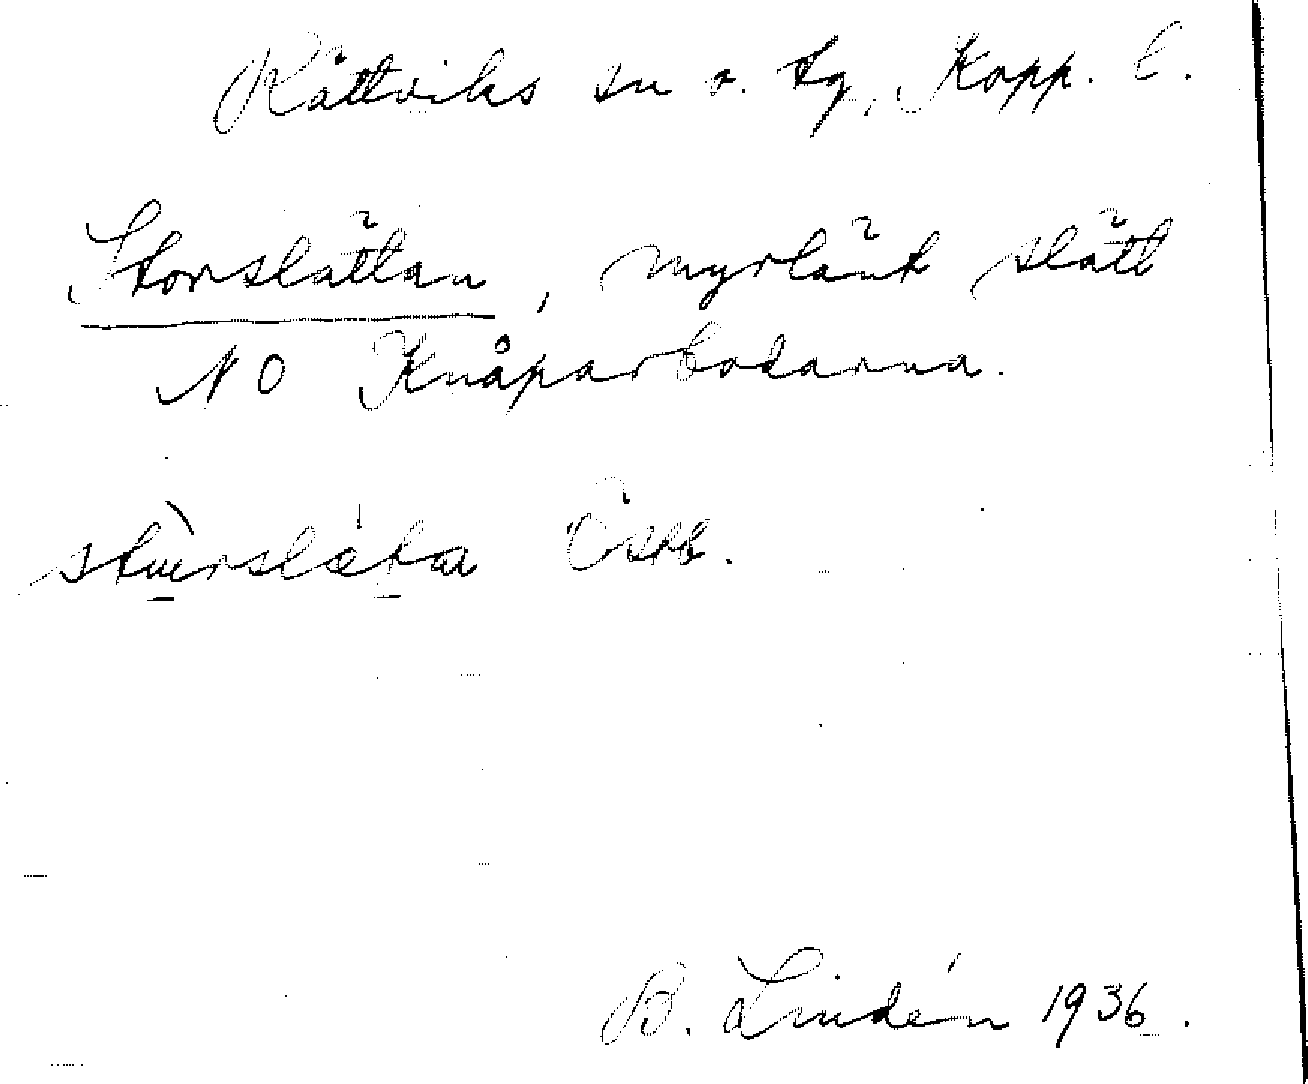 Rättviks sn o. tg, Kopp. l.
Storslättan, myrlänt slätt
NO Knåparbodarna.
B. Lindén 1936.